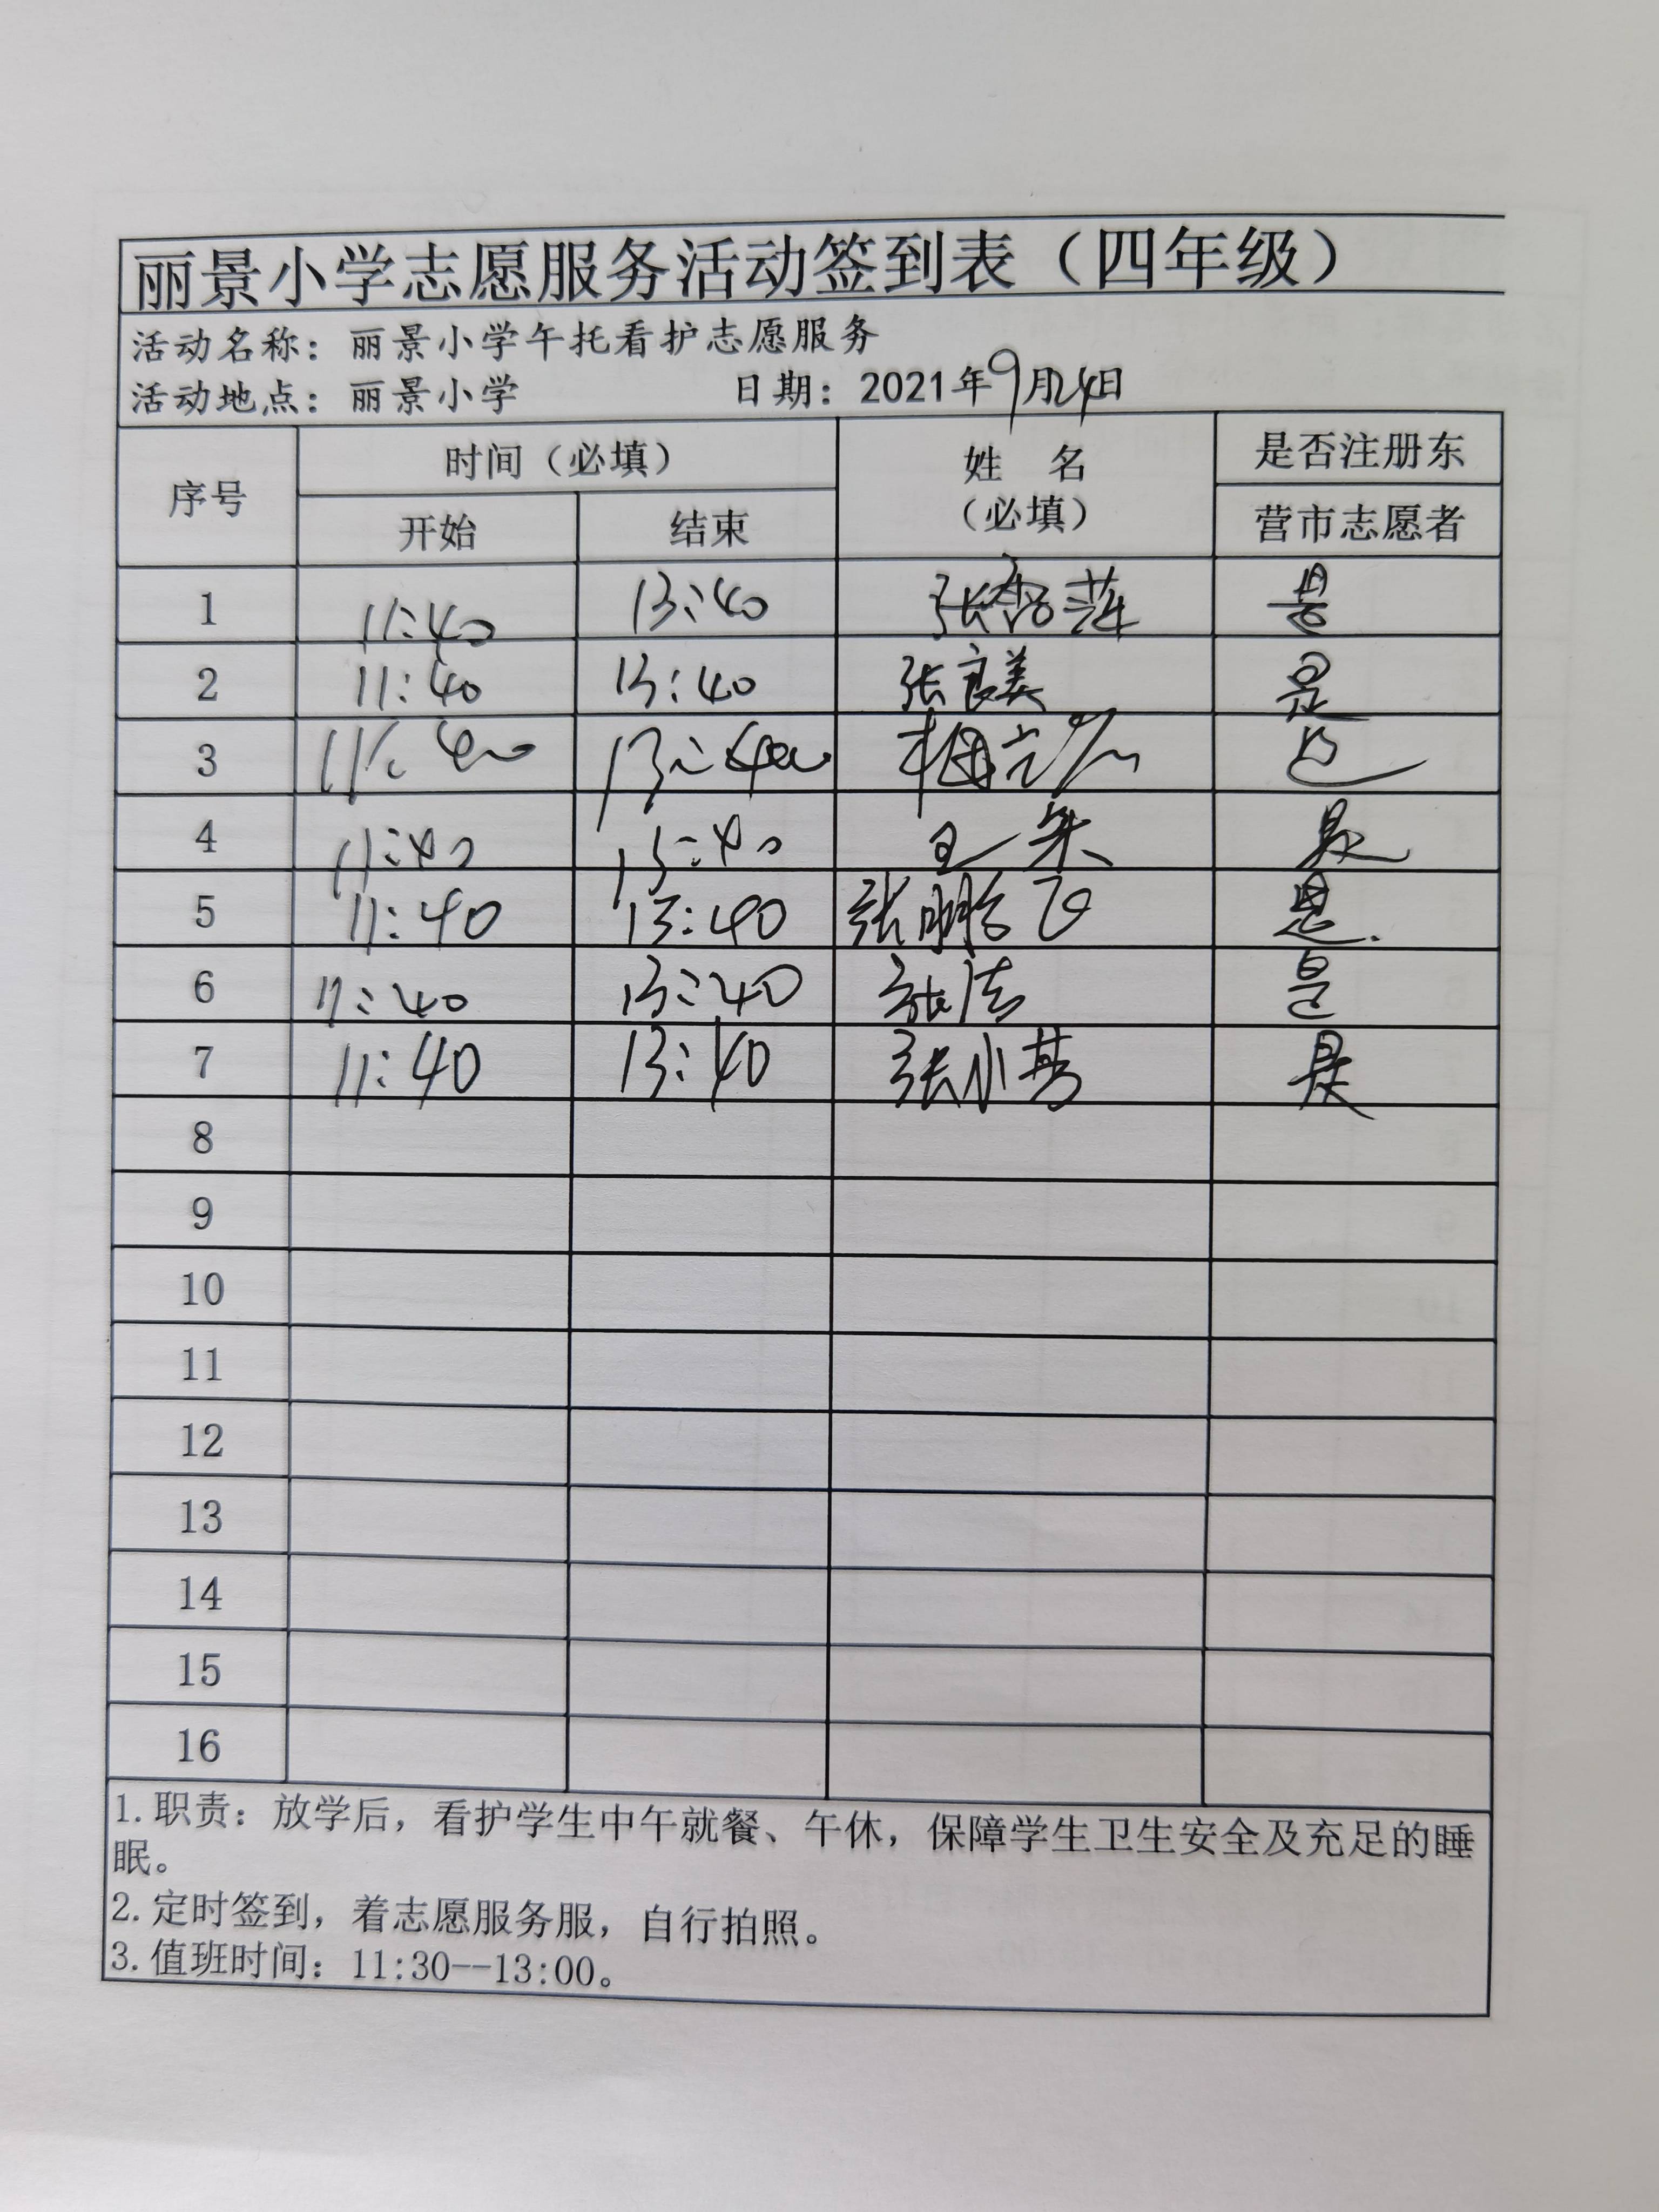 丽景小学志愿服务活动签到表（四年级）
活动名称：丽景小学午托看护志愿服务
活动地点：丽景小学 日期：2021年9月24日
序号 时间（必填） 姓 名（必填） 是否注册东营市志愿者
开始 结束
1 11:40 13:40 张 萍 是
2 11:40 13:40 张良美 是
3 11:40 13:40 是
4 11:40 13:40 王 是
5 11:40 13:40 张 飞 是
6 11:40 13:40 张洁 是
7 11:40 13:40 张小 是
8
9
10
11
12
13
14
15
16
1.职责：放学后，看护学生中午就餐、午休，保障学生卫生安全及充足的睡
眠。
2.定时签到，着志愿服务服，自行拍照。
3.值班时间：11:30--13:00。